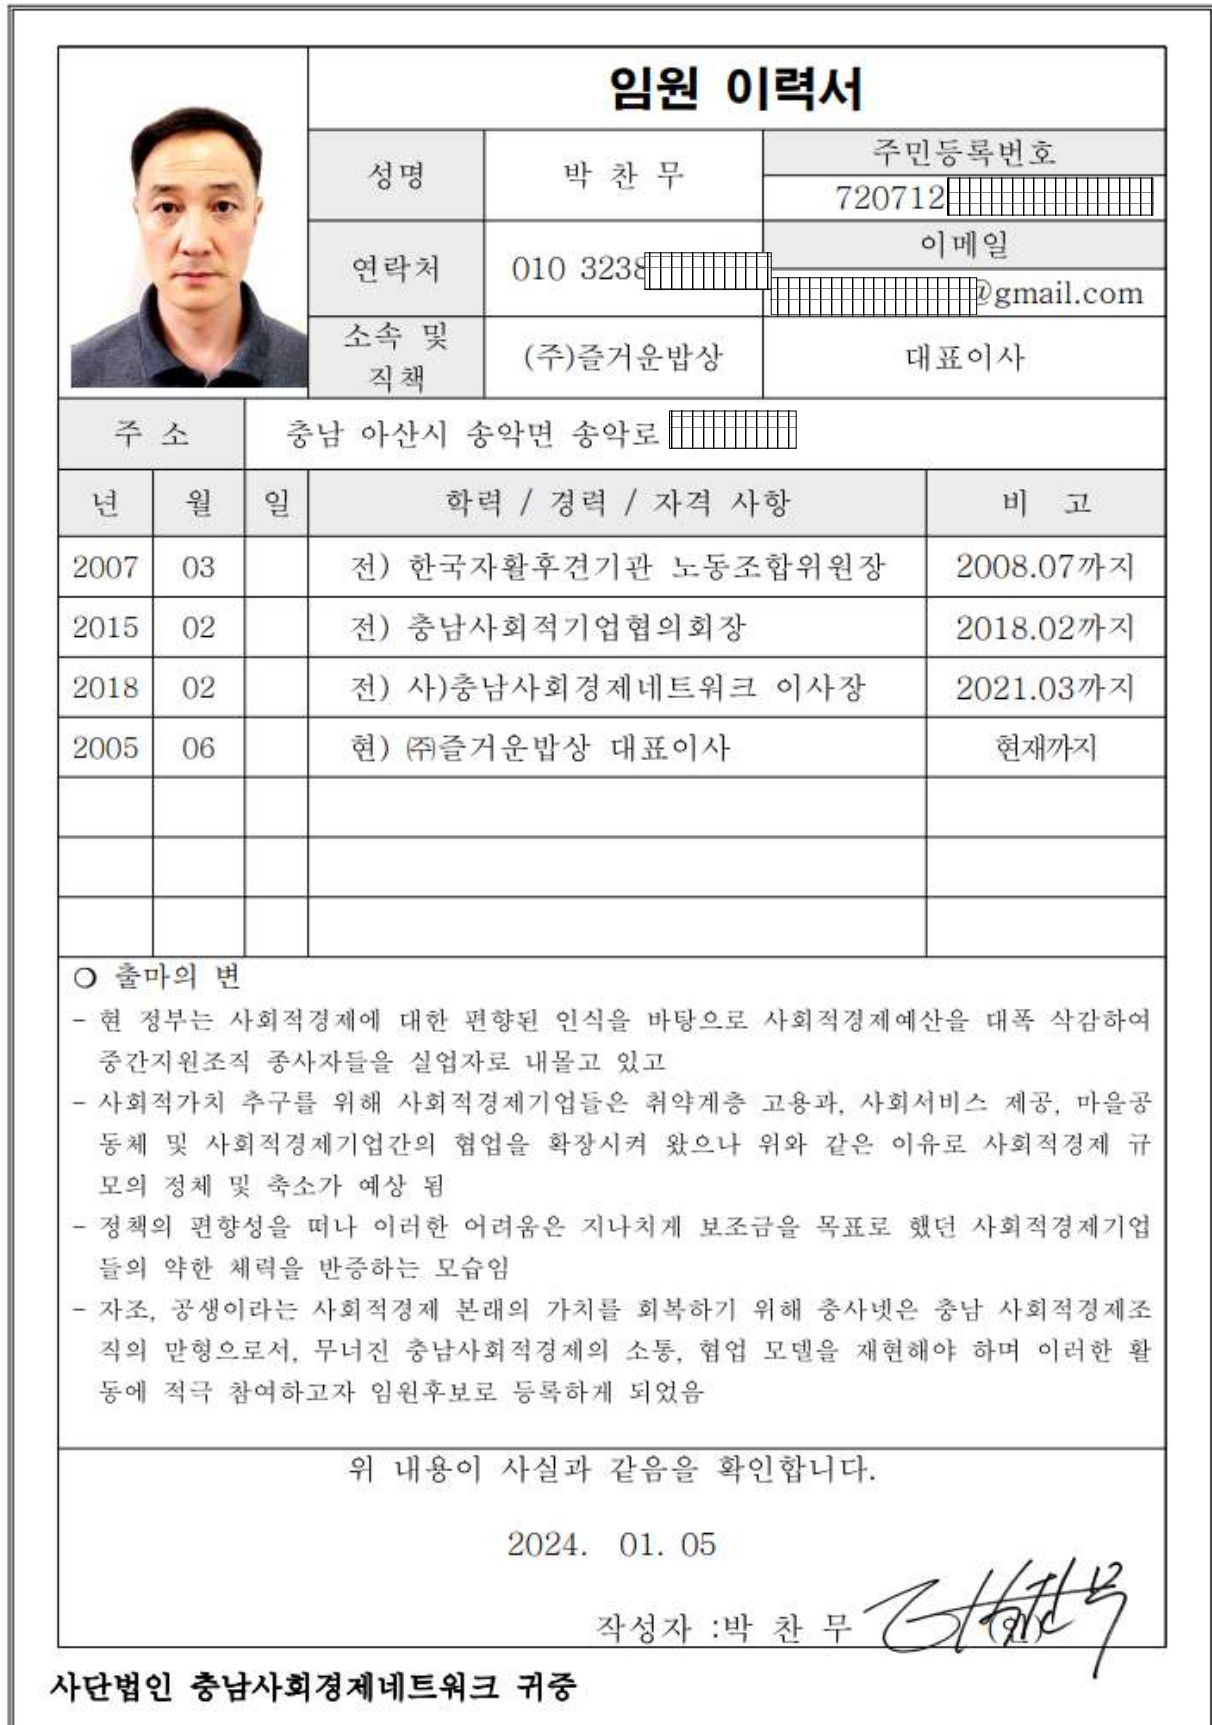 임원 이력서
성명
박 찬 무
주민등록번호
720712
연락처
010 3238
이메일
@gmail.com
소속 및
직책
(주)즐거운밥상
대표이사
주 소
충남 아산시 송악면 송악로
년 월 일 학력 / 경력 / 자격 사항 비 고
2007 03 전) 한국자활후견기관 노동조합위원장 2008.07까지
2015 02 전) 충남사회적기업협의회장 2018.02까지
2018 02 전) 사)충남사회경제네트워크 이사장 2021.03까지
2005 06 현) ㈜즐거운밥상 대표이사 현재까지
❍ 출마의 변
- 현 정부는 사회적경제에 대한 편향된 인식을 바탕으로 사회적경제예산을 대폭 삭감하여
중간지원조직 종사자들을 실업자로 내몰고 있고
- 사회적가치 추구를 위해 사회적경제기업들은 취약계층 고용과, 사회서비스 제공, 마을공
동체 및 사회적경제기업간의 협업을 확장시켜 왔으나 위와 같은 이유로 사회적경제 규
모의 정체 및 축소가 예상 됨
- 정책의 편향성을 떠나 이러한 어려움은 지나치게 보조금을 목표로 했던 사회적경제기업
들의 약한 체력을 반증하는 모습임
- 자조, 공생이라는 사회적경제 본래의 가치를 회복하기 위해 충사넷은 충남 사회적경제조
직의 맏형으로서, 무너진 충남사회적경제의 소통, 협업 모델을 재현해야 하며 이러한 활
동에 적극 참여하고자 임원후보로 등록하게 되었음
위 내용이 사실과 같음을 확인합니다.
2024. 01. 05
작성자 :박 찬 무 (인)
사단법인 충남사회경제네트워크 귀중